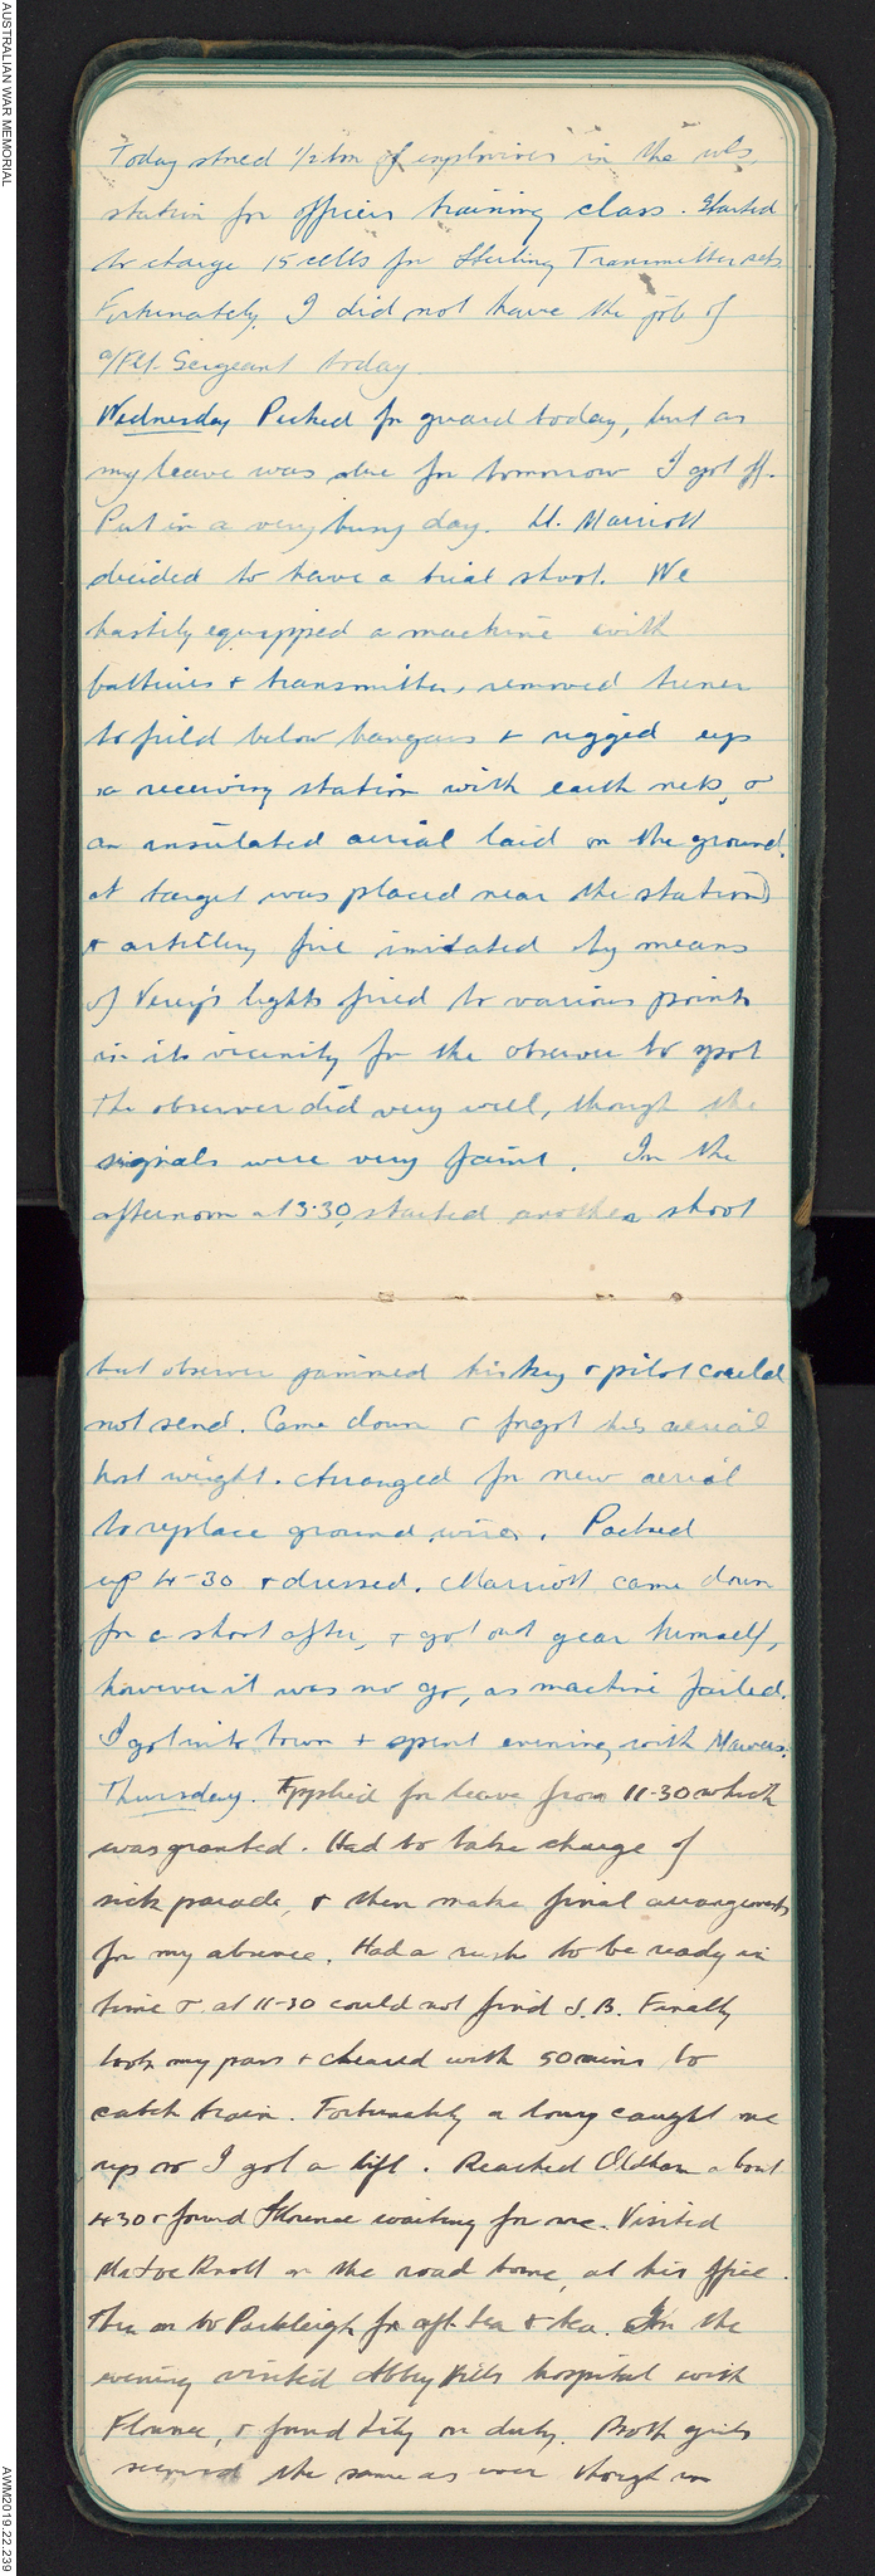 AUSTRALIAN WAR MEMORIAL
Today stored 1/2 ton of explosives in the w/s
station for officers training class. Started
to charge 15 cells for Sterling Transmitter sets.
Fortunately I did not have the job of
a/Flt. Sergeant today.
Wednesday Picked for guard today, but as
my leave was due for tomorrow I got off.
Put in a very busy day. Lt. Marriott
decided to have a trial shoot. We
hastily equipped a machine with
batteries & transmitter, removed tuner
to field below hangars & rigged up
a receiving station with earth nets, &
an insulated aerial laid on the ground.
A target was placed near the station
& artillery fire imitated by means
of Verey's lights fired to various points
in its vicinity for the observer to spot
The observer did very well, though the
signals were very faint. In the
afternoon at 3.30, started another shoot
but observer jammed his key & pilot could
not send. Came down & forgot his aerial
lost weight. Arranged for new aerial
to replace ground wires. Packed
up 4-30 & dressed. Marriott came down
for a shoot after, & got out gear himself,
however it was no go, as machine failed.
I got into town & spent evening with
Thursday. Applied for leave from 11-30 which
was granted. Had to take charge of
sick parade, & then make final arrangements
for my absence. Had a rush to be ready in
time & at 11-30 could not find S.B. Finally
took my pass & cleared with 50 mins to
catch train. Fortunately a lorry caught me
up so I got a lift. Reached Oldham about
4 30 & found Florence waiting for me. Visited
Mr Joe Knott on the road home, at his office.
Then on to Parkleigh for aft. tea & tea. In the
evening visited Abbey Hills hospital with
Florence, & found Lily on duty. Both girls
seemed the same as ever though in
AWM2019.22.239